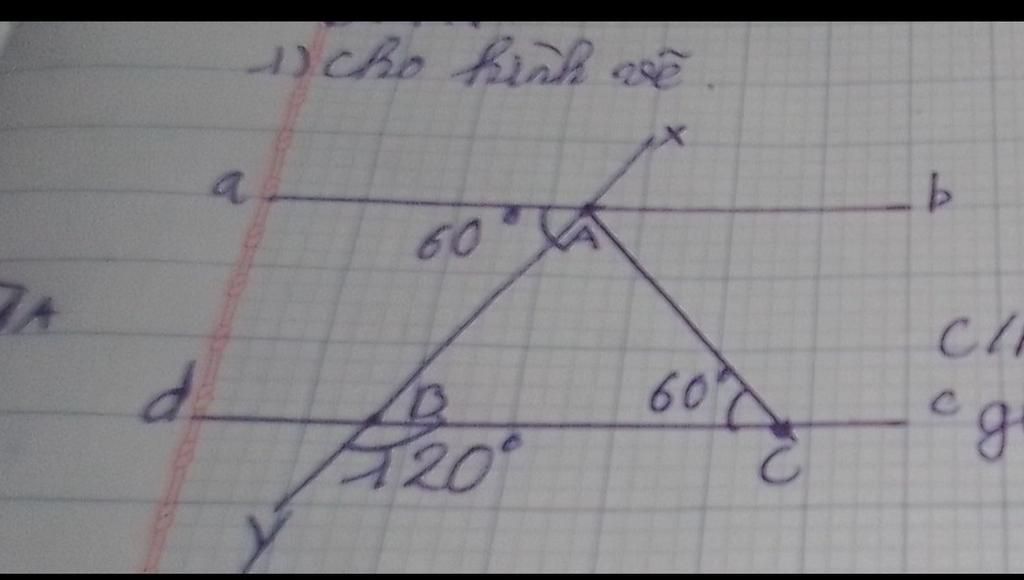 1) cho hình vẽ.
x
a b
60° A
60°
d B c
120° C
y